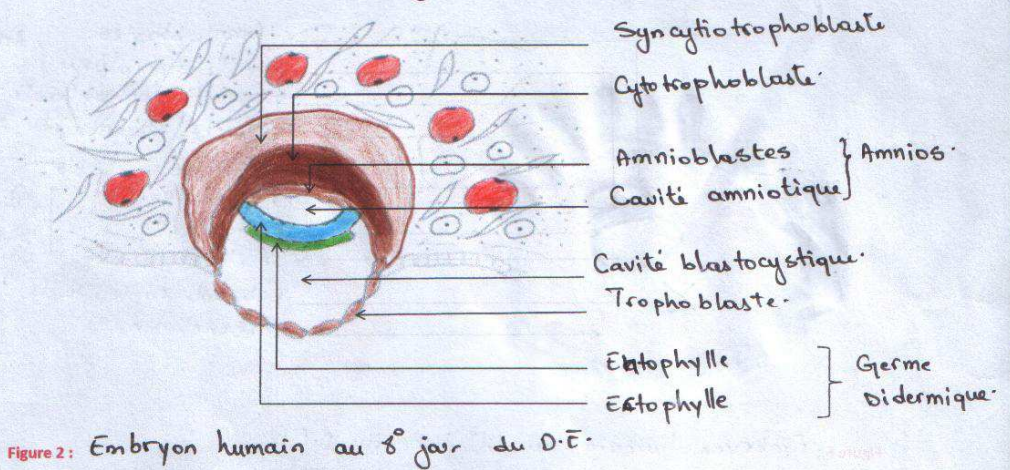 Syncytiotrophoblaste
Cytotrophoblaste.
Amnioblastes
Cavité amniotique
} Amnios.
Cavité blastocystique.
Trophoblaste.
Entophylle
Ectophylle
} Germe
Didermique.
Figure 2 : Embryon humain au 8° jour du D.E.